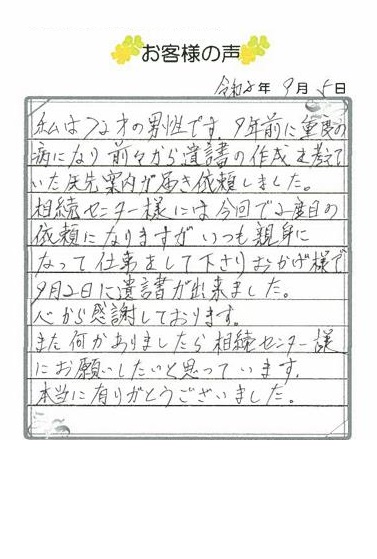 お客様の声
令和2年 9月 5日
私は72才の男性です。9年前に重度の
病になり前々から遺言書の作成を考えて
いた矢先案内が届き依頼しました。
相続センター様には今回で2度目の
依頼になりますがいつも親身に
なって仕事をして下さりおかげ様で
9月2日に遺言書が出来ました。
心から感謝しております。
また何かありましたら相続センター様
にお願いしたいと思っています。
本当に有りがとうございました。